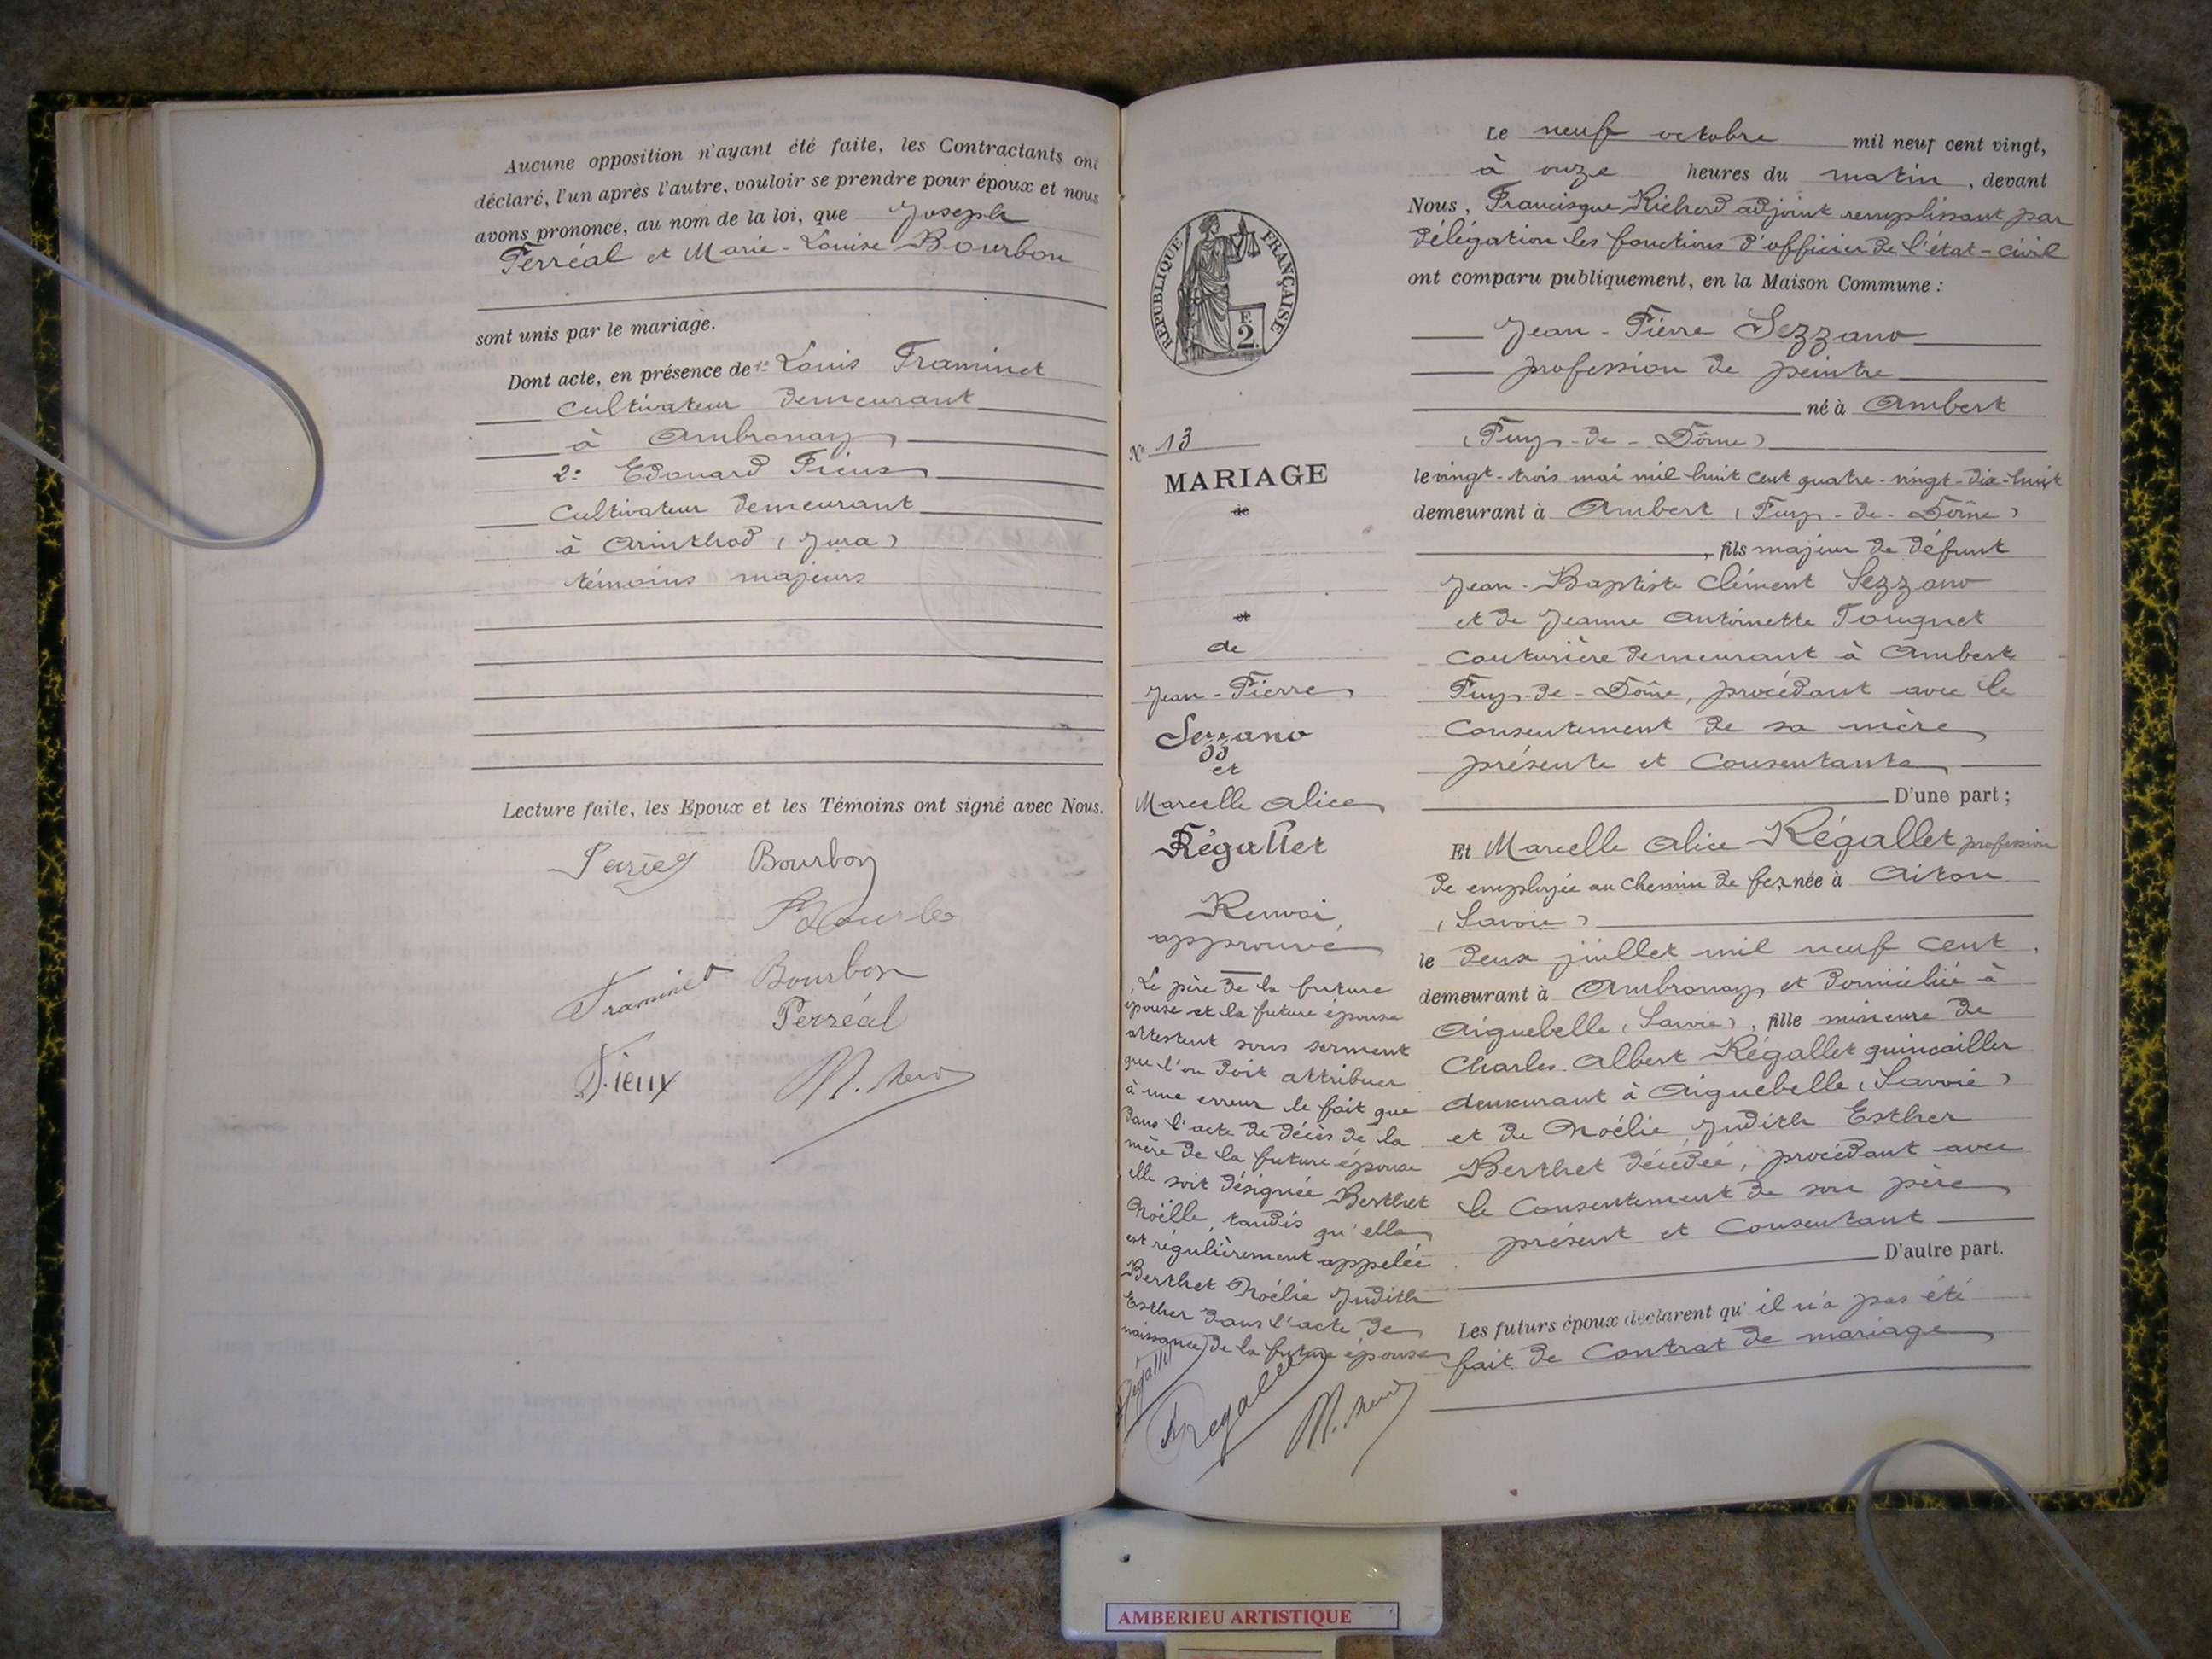 Aucune opposition n'ayant été faite, les Contractants ont
déclaré, l'un après l'autre, vouloir se prendre pour époux et nous
avons prononcé, au nom de la loi, que Joseph
Perréal et Marie-Louise Bourbon
sont unis par le mariage.
Dont acte, en présence de 1º Louis Framinet
cultivateur demeurant
à Ambronay
2º Edouard Pieux
cultivateur demeurant
à Arinthod (Jura)
témoins majeurs
Lecture faite, les Epoux et les Témoins ont signé avec Nous.
Bourbon
Framinet Bourbon
Perréal
Pieux
RÉPUBLIQUE FRANÇAISE
F.
2.
Nº 13
MARIAGE
de
et
de
Jean-Pierre
Sezzano
zz
et
Marcelle Alice
Régallet
Renvoi
approuvé
Le père de la future
épouse et la future épouse
attestent sous serment
que l'on doit attribuer
à une erreur le fait que
dans l'acte de décès de la
mère de la future épouse
elle soit désignée Berthet
Noëlle, tandis qu'elle
est régulièrement appelée
Berthet Noélie Judith
Esther dans l'acte de
naissance de la future épouse
Régallet
Regallet
Le neuf octobre mil neuf cent vingt,
à onze heures du matin, devant
Nous, Francisque Richerd adjoint remplissant par
délégation les fonctions d'officier de l'état-civil
ont comparu publiquement, en la Maison Commune :
Jean-Pierre Sezzano
profession de peintre
né à Ambert
(Puy-de-Dôme)
le vingt-trois mai mil huit cent quatre-vingt-dix-huit
demeurant à Ambert (Puy-de-Dôme)
, fils majeur de défunt
Jean-Baptiste Clément Sezzano
et de Jeanne Antoinette Pouguet
couturière demeurant à Ambert
Puy-de-Dôme, procédant avec le
consentement de sa mère
présente et consentante
D'une part ;
Et Marcelle Alice Régallet profession
de employée au chemin de fer née à Aiton
(Savoie)
le deux juillet mil neuf cent
demeurant à Ambronay et domiciliée à
Aiguebelle (Savoie), fille mineure de
Charles Albert Régallet quincailler
demeurant à Aiguebelle (Savoie)
et de Noélie Judith Esther
Berthet décédée, procédant avec
le consentement de son père
présent et consentant
D'autre part.
Les futurs époux déclarent qu'il n'a pas été
fait de contrat de mariage
AMBERIEU ARTISTIQUE